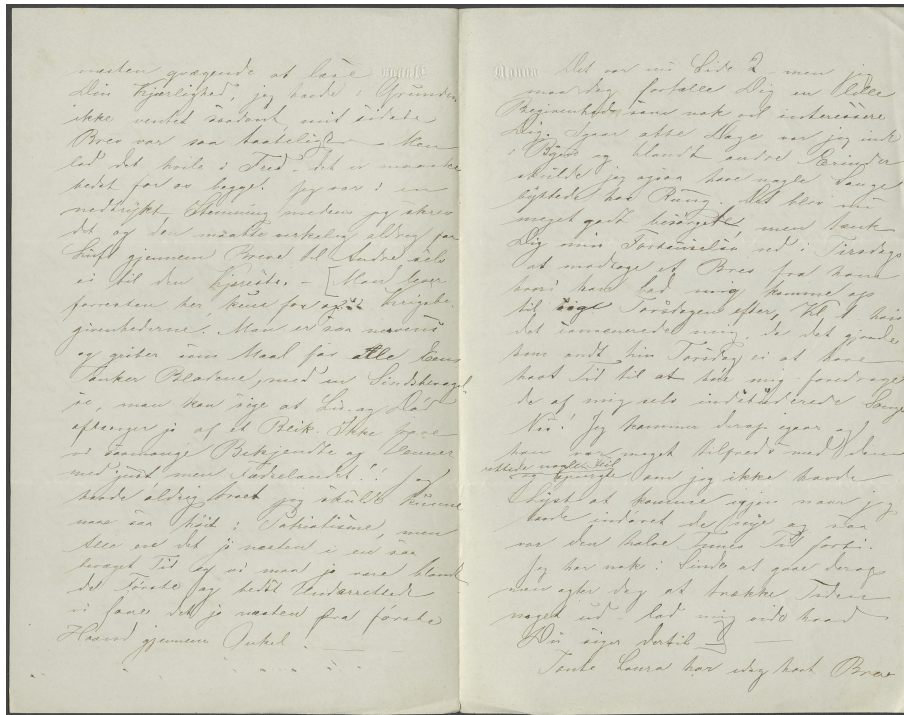 næsten grægende at læse
Din Kjærlighed, jeg havde i Grunden
ikke ventet saadant, mit sidste
Brev var saa taabeligt – Men
lad det hvile i Fred – det er maaske
bedst for os begge. Jeg var i en
nedtrykt Stemning medens jeg skrev
det og den maatte virkelig aldrig faae
Luft gjennem Breve til Andre selv
ei til den Kjæreste. – [Man lever
forresten her kun for Krigsbe-
givenhederne. Man er saa nervøs
og griber som Maal for alle Eens
Tanker Bladene, med en Sindsbevægel-
se, man kan sige at Liv og Død
afhænger jo af et Blik. Ikke have
vi saamange Bekjendte og Venner
med just men Fædrelandet!! Jeg
havde aldrig troet jeg skulde kunne
naae saa høit i Patriotisme, men
Alle ere det jo næsten i en saa
bevæget Tid og vi maa jo være blandt
de Første og bedst Underrettede
vi faae det jo næsten fra første
Haand gjennem Onkel.
Nanna
Det var nu Side 2 – men jeg
maa dog fortælle Dig en lille
Begivenhed, som nok vil interessere
Dig. Igaar otte Dage var jeg inde
i Byen og blandt andre Ærinder
skulde jeg ogsaa have nogle Sange
byttede hos Rung. Det blev nu
meget godt besørget, men tænk
Dig min Forbauselse ved i Tirsdags
at modtage et Brev fra ham
hvori han bad mig komme op
til sig Torsdagen efter, Kl. 1 hvis
det convenerede mig, da det gjorde
ham ondt hin Torsdag ei at have
havt Tid til at høre mig foredrage
de af mig selv indstuderede Sange
Nu! Jeg kommer derop igaar og
han var meget tilfreds med dem
rettede nogle
og spurgte om jeg ikke havde
Lyst at komme igjen naar jeg
havde indøvet de nye og saa
var den halve Times Tid forbi.
Jeg har nok i Sinde at gaae derop
men agter dog at trække Tiden
noget ud – lad mig vide hvad
Du siger dertil
Tante Laura har idag havt Brev